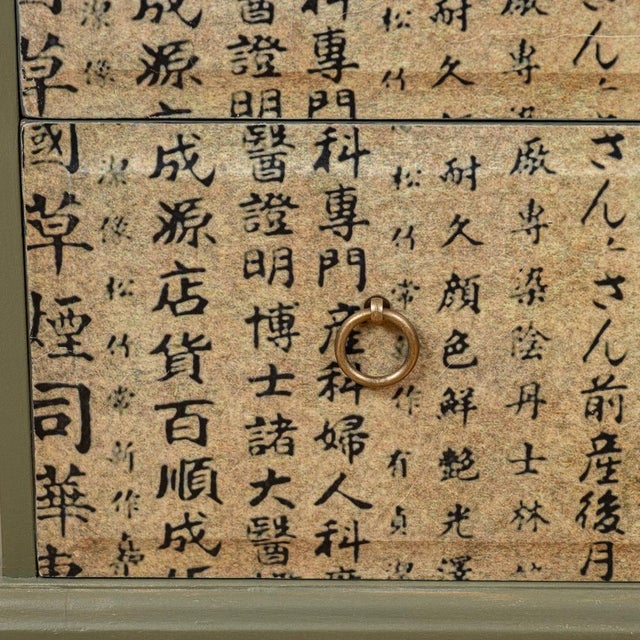 さんと
専
耐久
松竹
科專門
醫證明
成源
草
さんとさん前産後月
厰専染陰丹士林
耐久顔色鮮艷光澤
松竹常作有貞
科專門産科婦人科
醫證明博士諸大醫
成源店貨百順成
像松竹常新作
國草煙司華